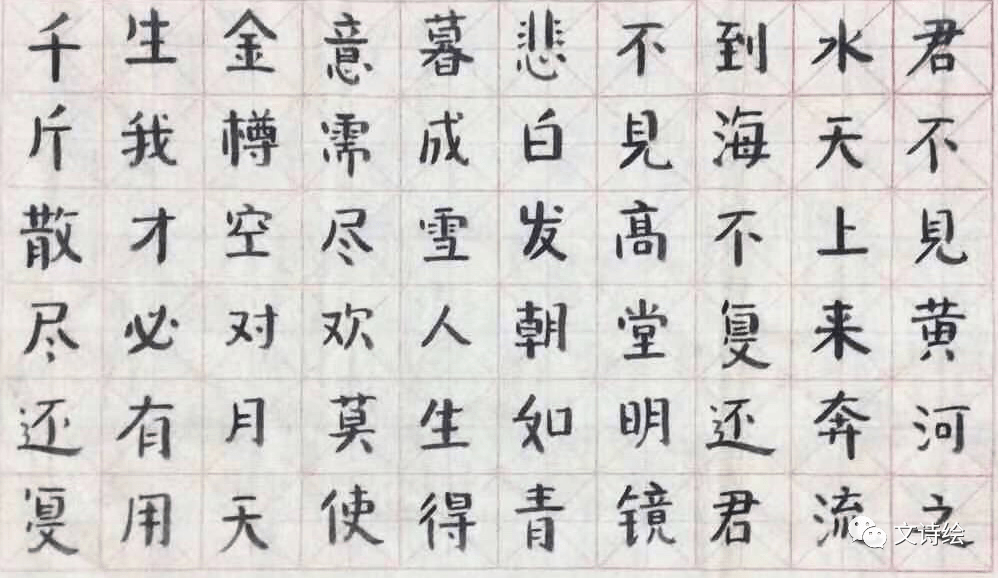 君不見黄河之
水天上来奔流
到海不复还君
不見高堂明镜
悲白发朝如青
暮成雪人生得
意需尽欢莫使
金樽空对月天
生我才必有用
千斤散尽还复
文诗绘